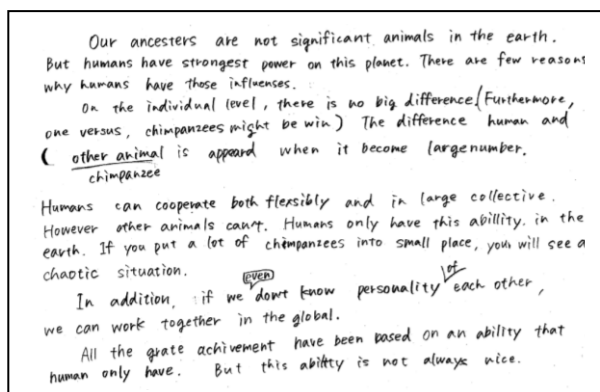 Our ancesters are not significant animals in the earth.
But humans have strongest power on this planet. There are few reasons
why humans have those influences.
On the individual level, there is no big difference. (Furthermore,
one versus, chimpanzees might be win) The difference human and
( other animal is appeard when it become large number.
chimpanzee
Humans can cooperate both flexibly and in large collective.
However other animals can't. Humans only have this abillity. in the
earth. If you put a lot of chimpanzees into small place, you will see a
chaotic situation.
even of
In addition, if we don't know personality each other,
we can work together in the global.
All the grate achivement have been based on an ability that
human only have. But this ability is not always nice.